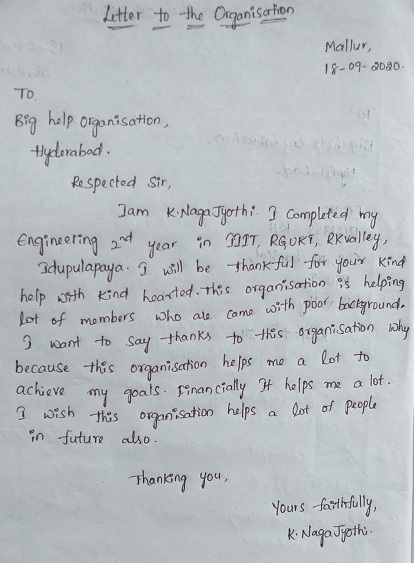 Letter to the Organisation
Mallur,
18-09-2020.
TO,
Big help organisation,
Hyderabad.
Respected Sir,
Iam K.NagaJyothi. I completed my
Engineering 2nd year in IIIT, RGUKT, RKvalley,
Idupulapaya. I will be thankful for your kind
help with kind hearted. This organisation is helping
lot of members who ale came with poor background.
I want to say thanks to this organisation why
because this organisation helps me a lot to
achieve my goals. Financially It helps me a lot.
I wish this organisation helps a lot of people
in future also.
Thanking you,
Yours faithfully,
K.NagaJyothi.